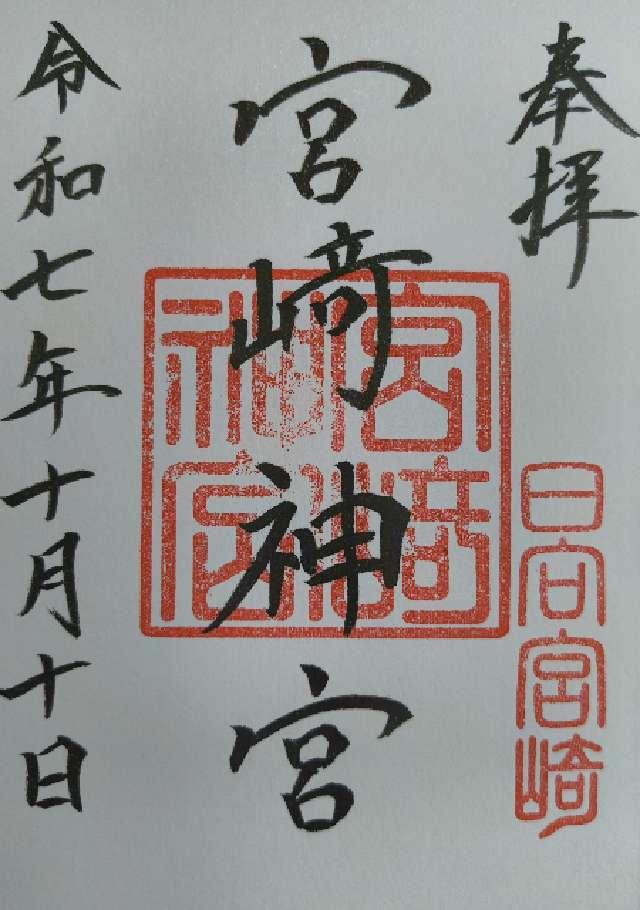 奉拝
日向宮崎
宮﨑神宮
宮崎神宮
令和七年十月十日